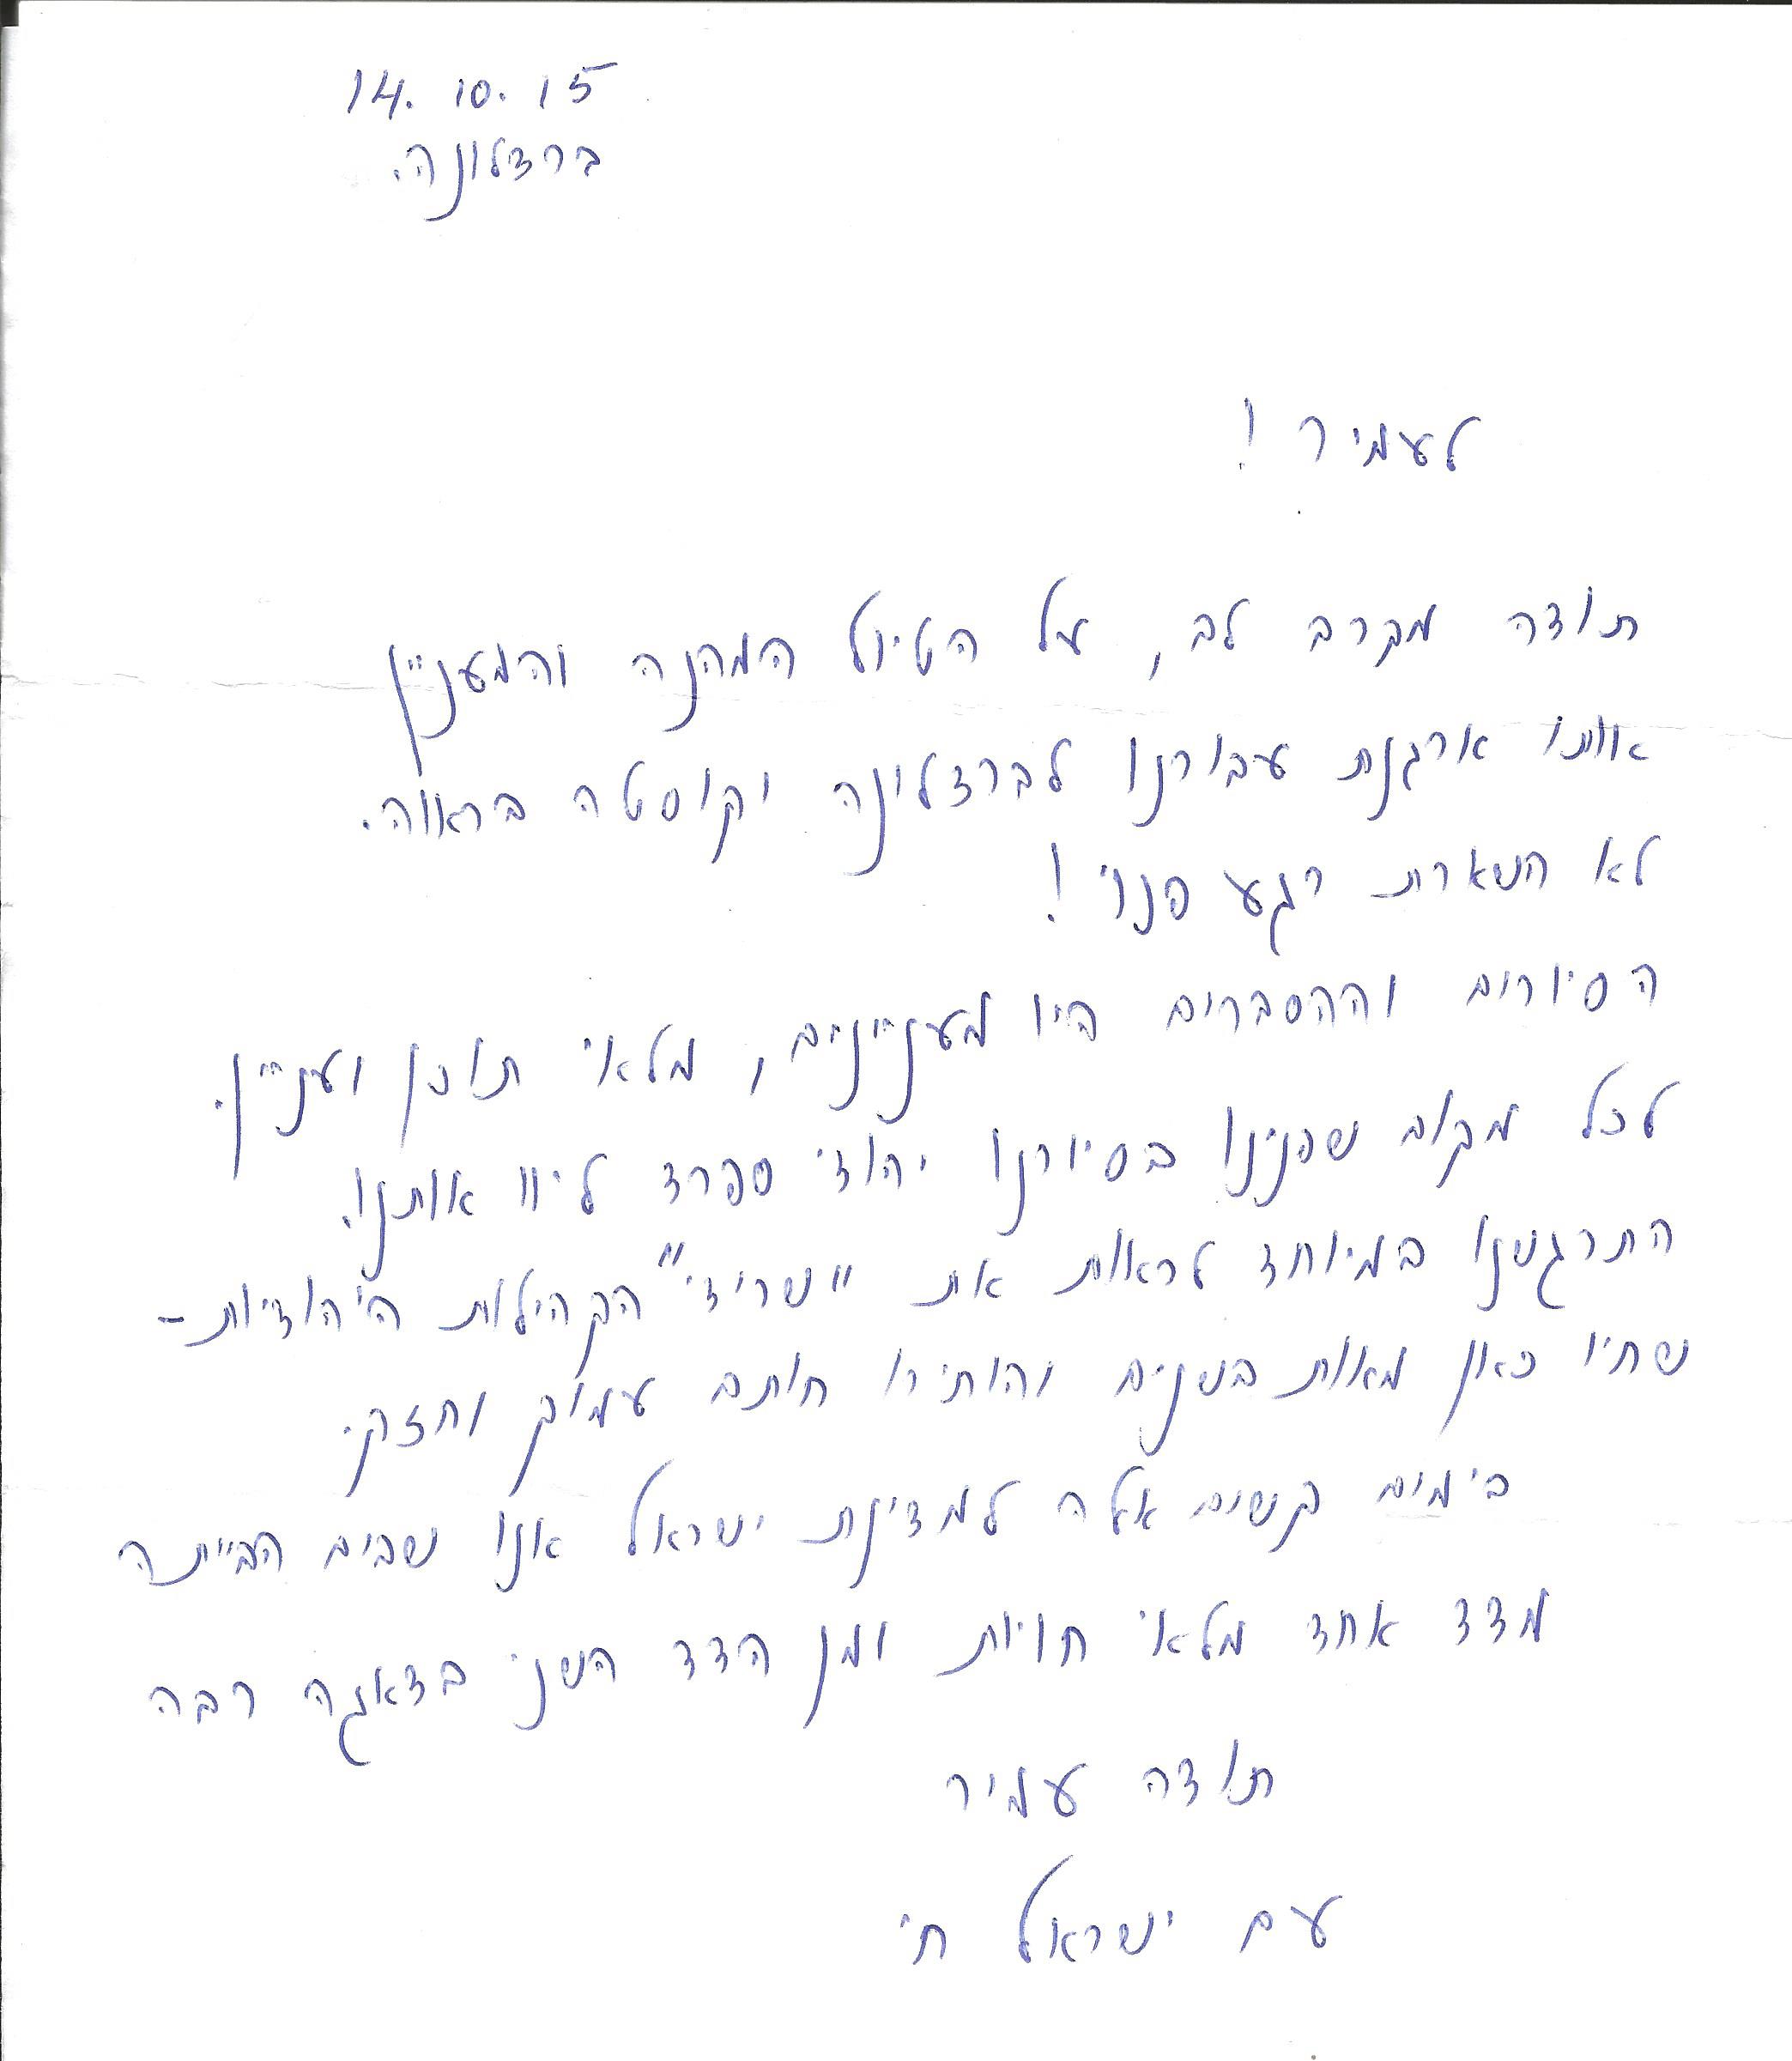 14.10.15
ברצלונה.
לעמיר!
תודה מקרב לב, על הטיול המהנה והמעניין
אותו ארגנת עבורנו לברצלונה וקוסטה בראווה.
לא השארת רגע פנוי!
הסיורים וההסברים היו מעניינים, מלאי תוכן ועניין.
לכל מקום שפנינו בסיורנו יהודי ספרד ליוו אותנו.
התרגשנו במיוחד לראות את "שרידי" הקהילות היהודיות-
שחיו כאן מאות בשנים והותירו חותם עמוק וחזק.
בימים קשים אלה למדינת ישראל אנו שבים הבייתה
מצד אחד מלאי חויות ומן הצד השני בדאגה רבה
תודה עמיר
עם ישראל חי